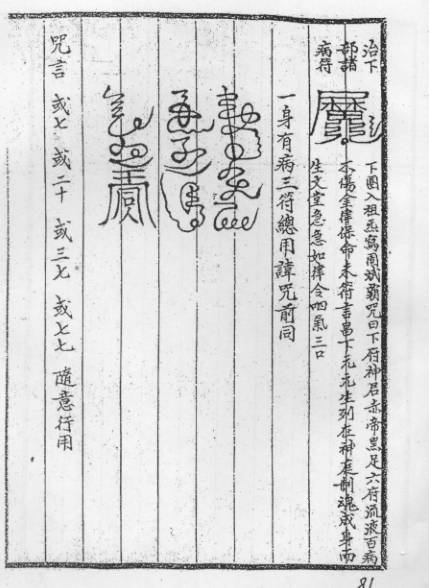 治下
部諸
病符
下圈入祖炁寫用咒曰下府神君赤帝黑足六府流液百病
不傷金律保命未符言下元元生列在神庭制魂成身而
生文堂急急如律令呬氣三口
一身有病三符總用諱咒前同
咒言 或七 或二十 或三七 或七七 隨意行用
81